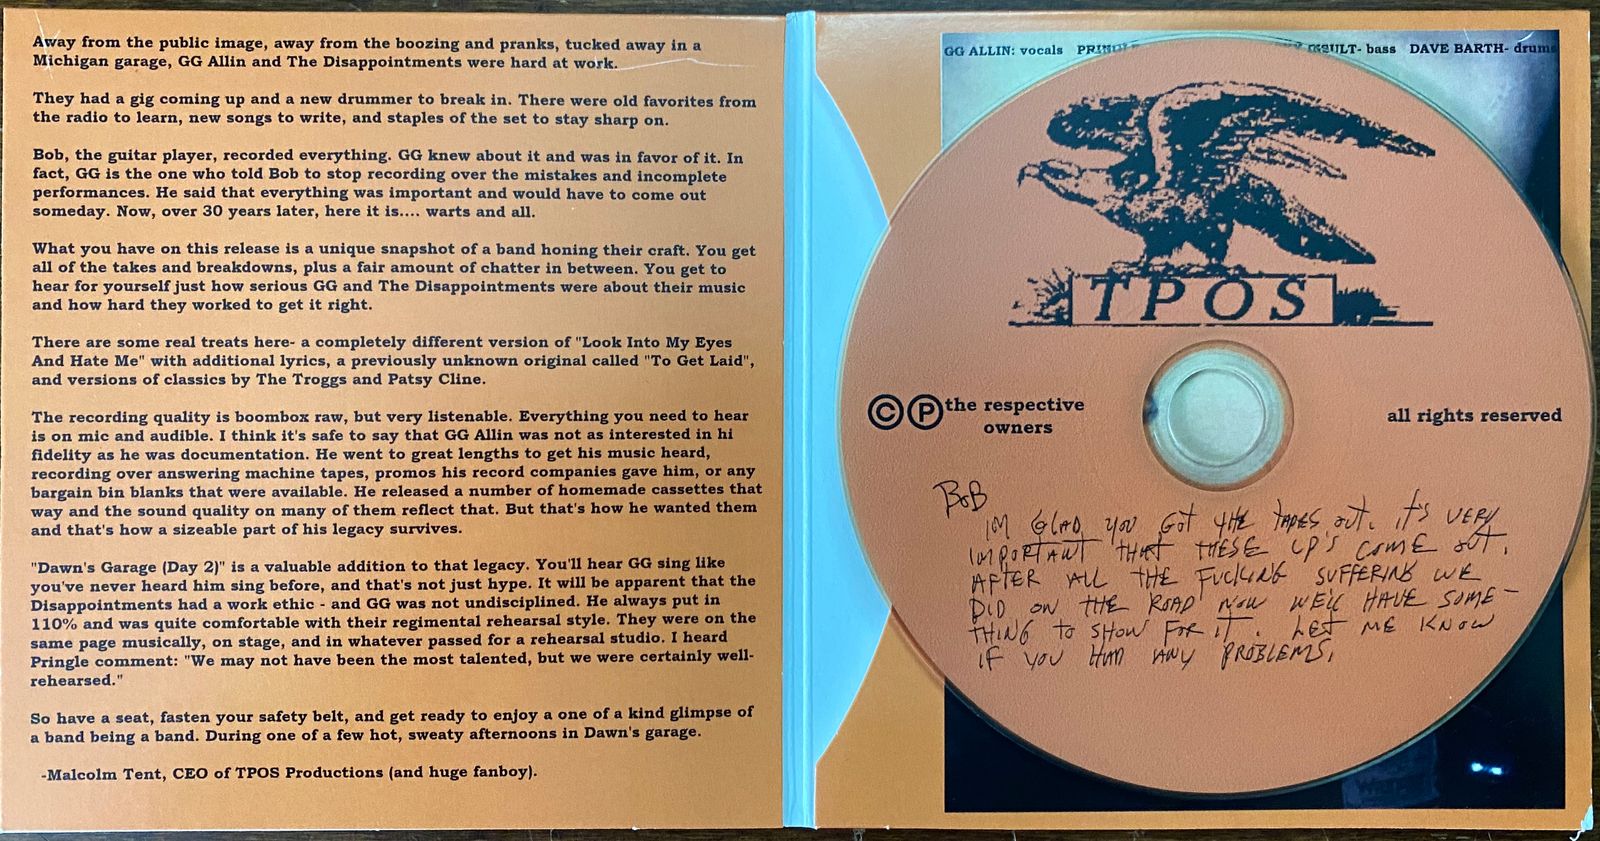 Away from the public image, away from the boozing and pranks, tucked away in a
Michigan garage, GG Allin and The Disappointments were hard at work.
They had a gig coming up and a new drummer to break in. There were old favorites from
the radio to learn, new songs to write, and staples of the set to stay sharp on.
Bob, the guitar player, recorded everything. GG knew about it and was in favor of it. In
fact, GG is the one who told Bob to stop recording over the mistakes and incomplete
performances. He said that everything was important and would have to come out
someday. Now, over 30 years later, here it is.... warts and all.
What you have on this release is a unique snapshot of a band honing their craft. You get
all of the takes and breakdowns, plus a fair amount of chatter in between. You get to
hear for yourself just how serious GG and The Disappointments were about their music
and how hard they worked to get it right.
There are some real treats here- a completely different version of "Look Into My Eyes
And Hate Me" with additional lyrics, a previously unknown original called "To Get Laid",
and versions of classics by The Troggs and Patsy Cline.
The recording quality is boombox raw, but very listenable. Everything you need to hear
is on mic and audible. I think it's safe to say that GG Allin was not as interested in hi
fidelity as he was documentation. He went to great lengths to get his music heard,
recording over answering machine tapes, promos his record companies gave him, or any
bargain bin blanks that were available. He released a number of homemade cassettes that
way and the sound quality on many of them reflect that. But that's how he wanted them
and that's how a sizeable part of his legacy survives.
"Dawn's Garage (Day 2)" is a valuable addition to that legacy. You'll hear GG sing like
you've never heard him sing before, and that's not just hype. It will be apparent that the
Disappointments had a work ethic - and GG was not undisciplined. He always put in
110% and was quite comfortable with their regimental rehearsal style. They were on the
same page musically, on stage, and in whatever passed for a rehearsal studio. I heard
Pringle comment: "We may not have been the most talented, but we were certainly well-
rehearsed."
So have a seat, fasten your safety belt, and get ready to enjoy a one of a kind glimpse of
a band being a band. During one of a few hot, sweaty afternoons in Dawn's garage.
-Malcolm Tent, CEO of TPOS Productions (and huge fanboy).
GG ALLIN: vocals - bass DAVE BARTH- drums
TPOS
©℗ the respective
owners
all rights reserved
BOB
IM GLAD YOU GOT THE TAPES OUT. IT'S VERY
IMPORTANT THAT THESE LP'S COME OUT.
AFTER ALL THE FUCKING SUFFERING WE
DID ON THE ROAD NOW WE'LL HAVE SOME-
THING TO SHOW FOR IT. LET ME KNOW
IF YOU HAD ANY PROBLEMS.